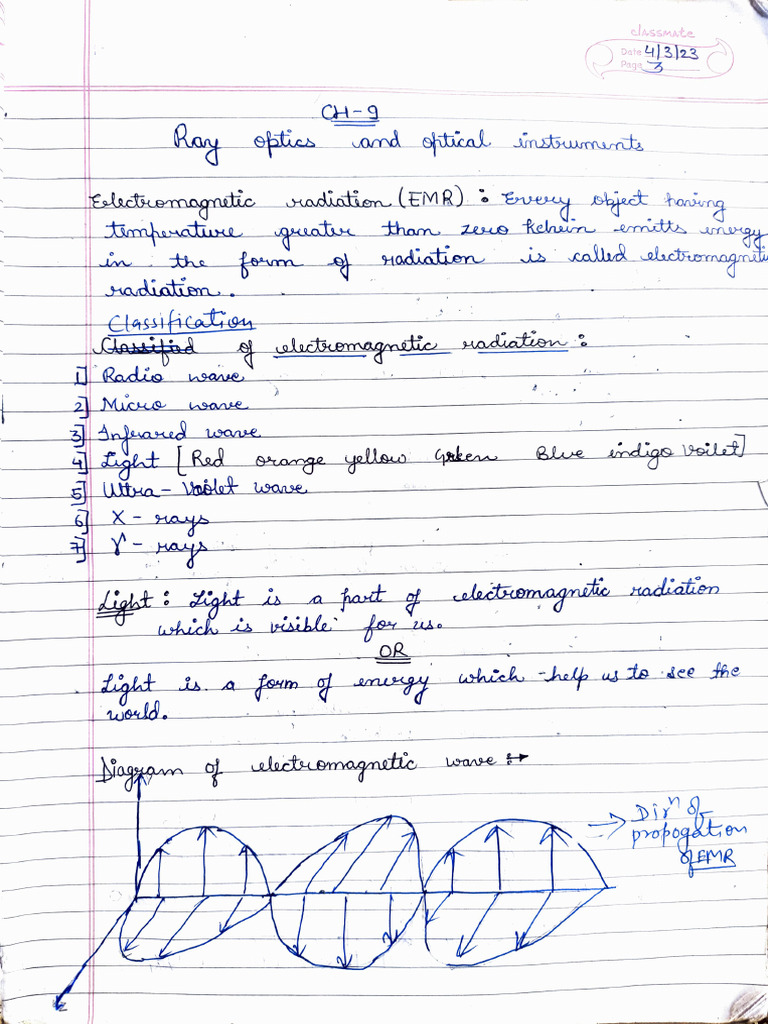 classmate
Date 4/3/23
Page 3
CH-9
Ray optics and optical instruments
Electromagnetic radiation (EMR) : Every object having
temperature greater than zero kelvin emitts energy
in the form of radiation is called electromagnetic
radiation.
Classification
of electromagnetic radiation :
1] Radio wave
2] Micro wave
3] Infrared wave
4] Light [Red orange yellow Green Blue indigo Voilet]
5] Ultra-Voilet wave
6] X-rays
7] γ-rays
Light : Light is a part of electromagnetic radiation
which is visible for us.
OR
Light is a form of energy which help us to see the
world.
Diagram of electromagnetic wave :→
⇒ Dirⁿ of
propogation
of EMR